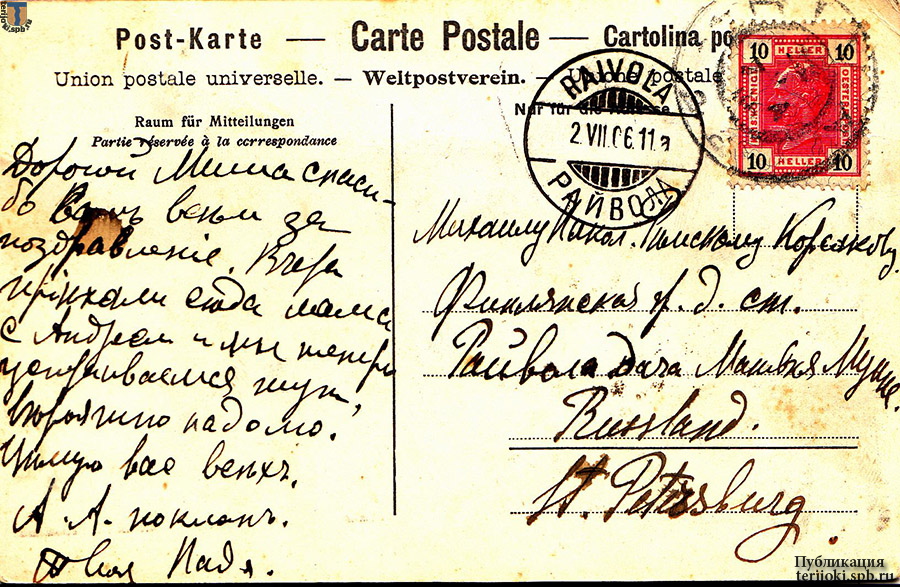 terijoki.spb.ru
Post-Karte — Carte Postale — Cartolina po
Union postale universelle. — Weltpostverein. — Unione postale
Raum für Mitteilungen
Partie réservée à la correspondance
Nur für die Adresse
RAIVOLA
2.VII.06.11a
РАЙВОЛА
10 HELLER 10
10 HELLER 10
Дорогой Миша спаси-
бо Вамъ всѣмъ за
поздравленіе. Вчера
пріѣхали сюда мама
с Андреем и мы теперь
устраиваемся тутъ
вѣроятно надолго.
Цѣлую вас всѣхъ.
А. А. поклонъ.
Твоя Надя.
Михаилу Никол. Римскому Корсакову.
Финляндская ж. д. ст.
Райвола дача Матвѣя
Russland.
St. Petersburg.
Публикация
terijoki.spb.ru